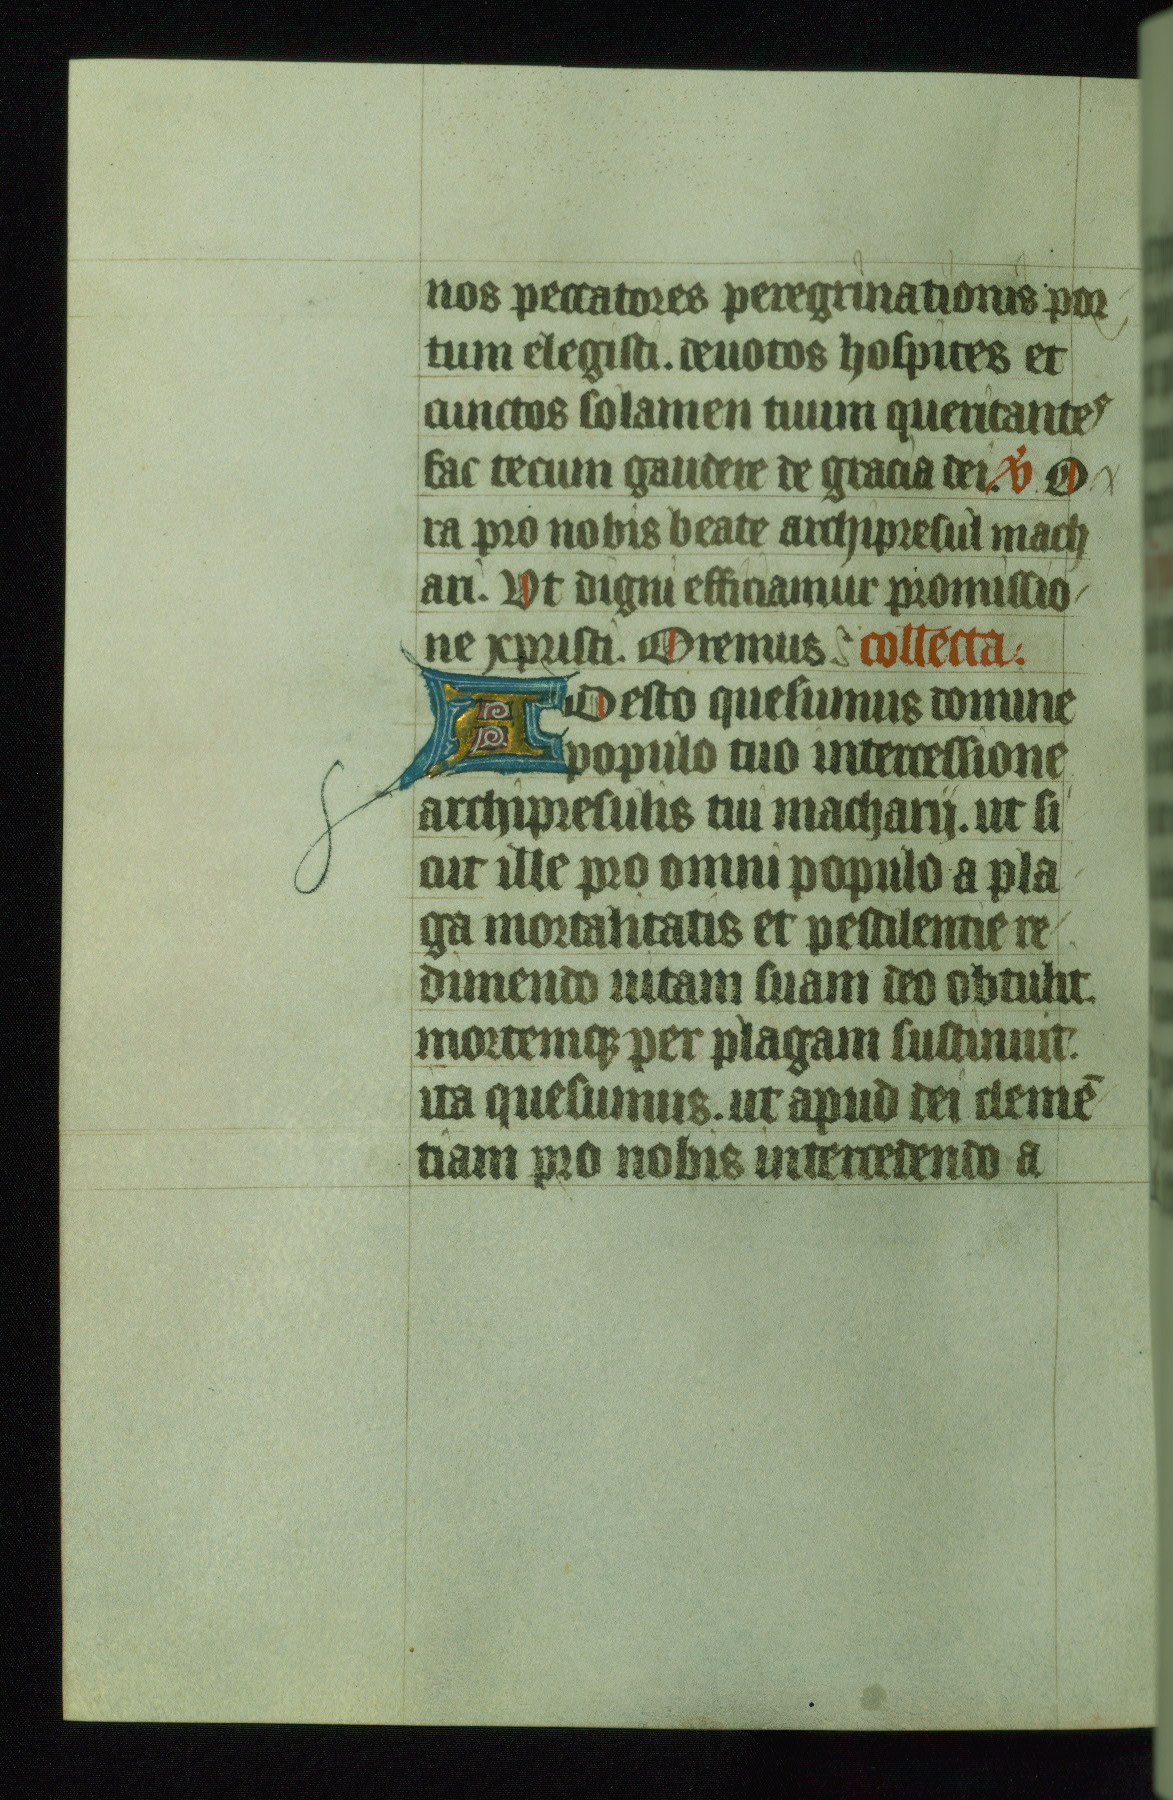 nos peccatores peregrinationis por
tum elegisti. deuotos hospites et
cunctos solamen tuum queritantes
fac tecum gaudere de gracia dei. ℣ O
ra pro nobis beate archipresul mach
ari. Vt digni efficiamur promissio
ne xpristi. Oremus collecta.
ADesto quesumus domine
populo tuo intercessione
archipresulis tui macharij. ut si
cut ille pro omni populo a pla
ga mortalitatis et pestilentie re
dimendo uitam suam deo obtulit.
mortemqꝫ per plagam sustinuit.
ita quesumus. ut apud dei clemē
tiam pro nobis intercedendo a